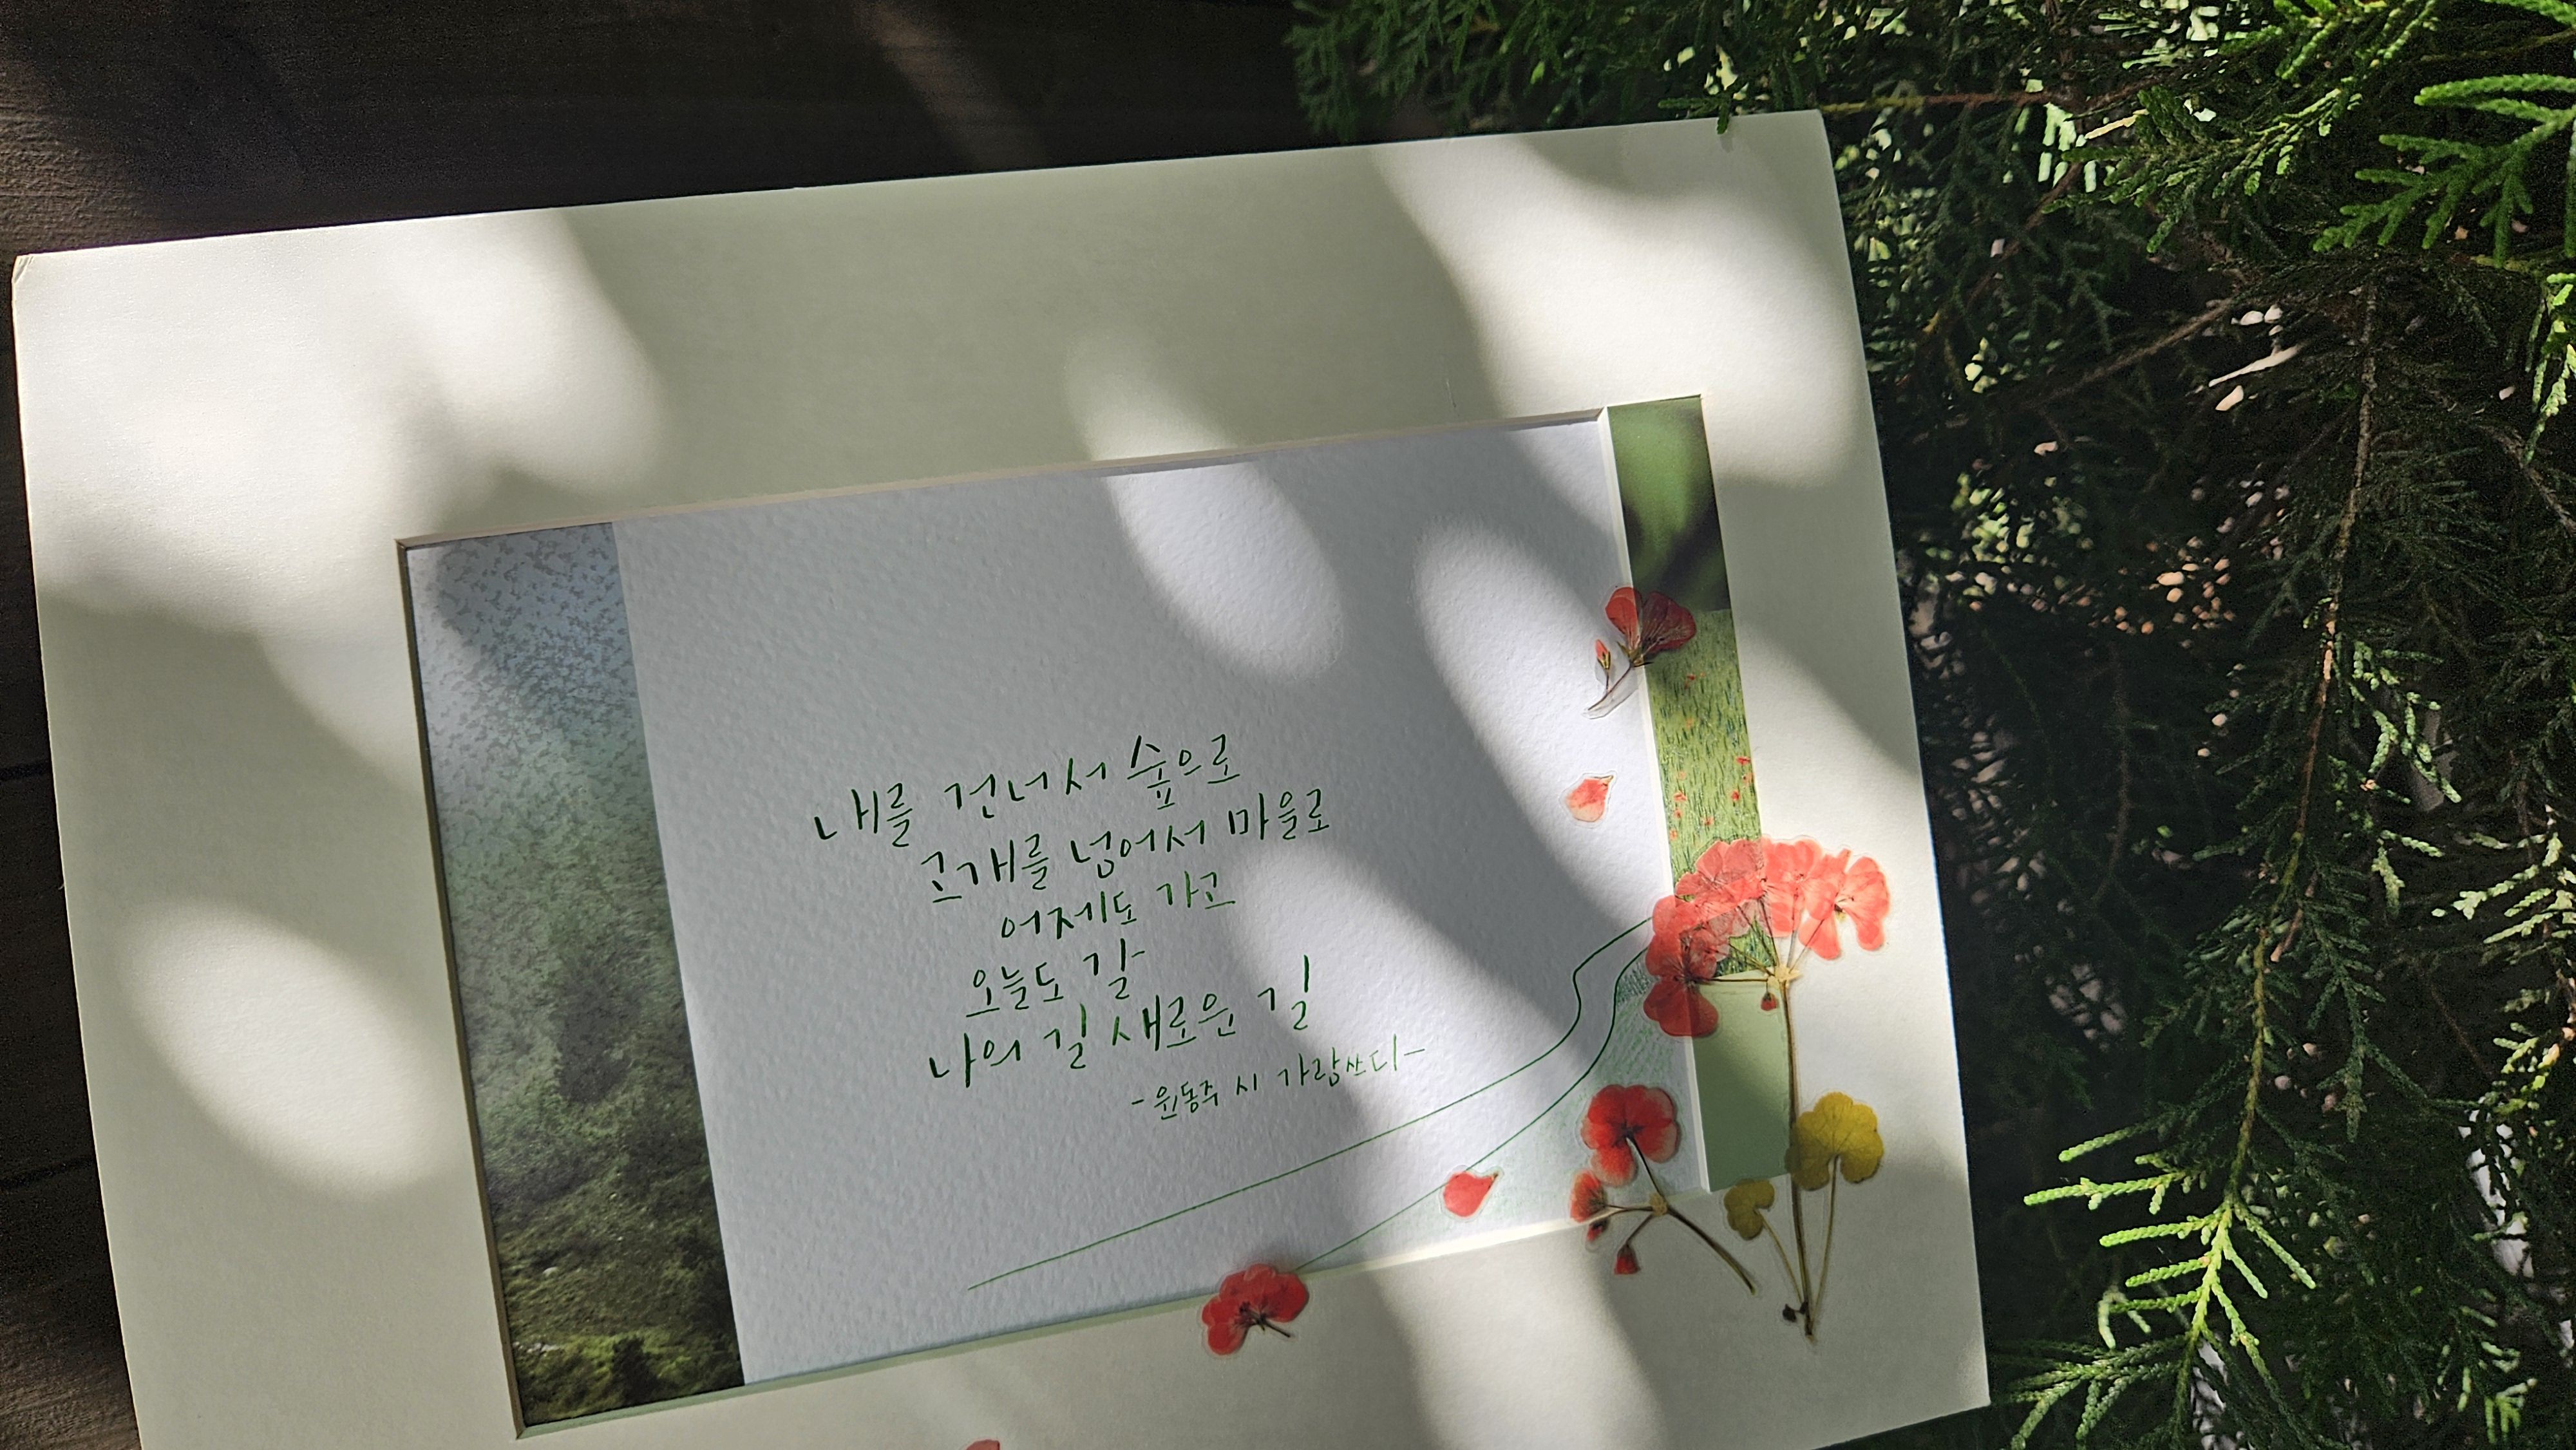 내를 건너서 숲으로
고개를 넘어서 마을로
어제도 가고
오늘도 갈
나의 길 새로운 길
-윤동주 시 가람쓰다-